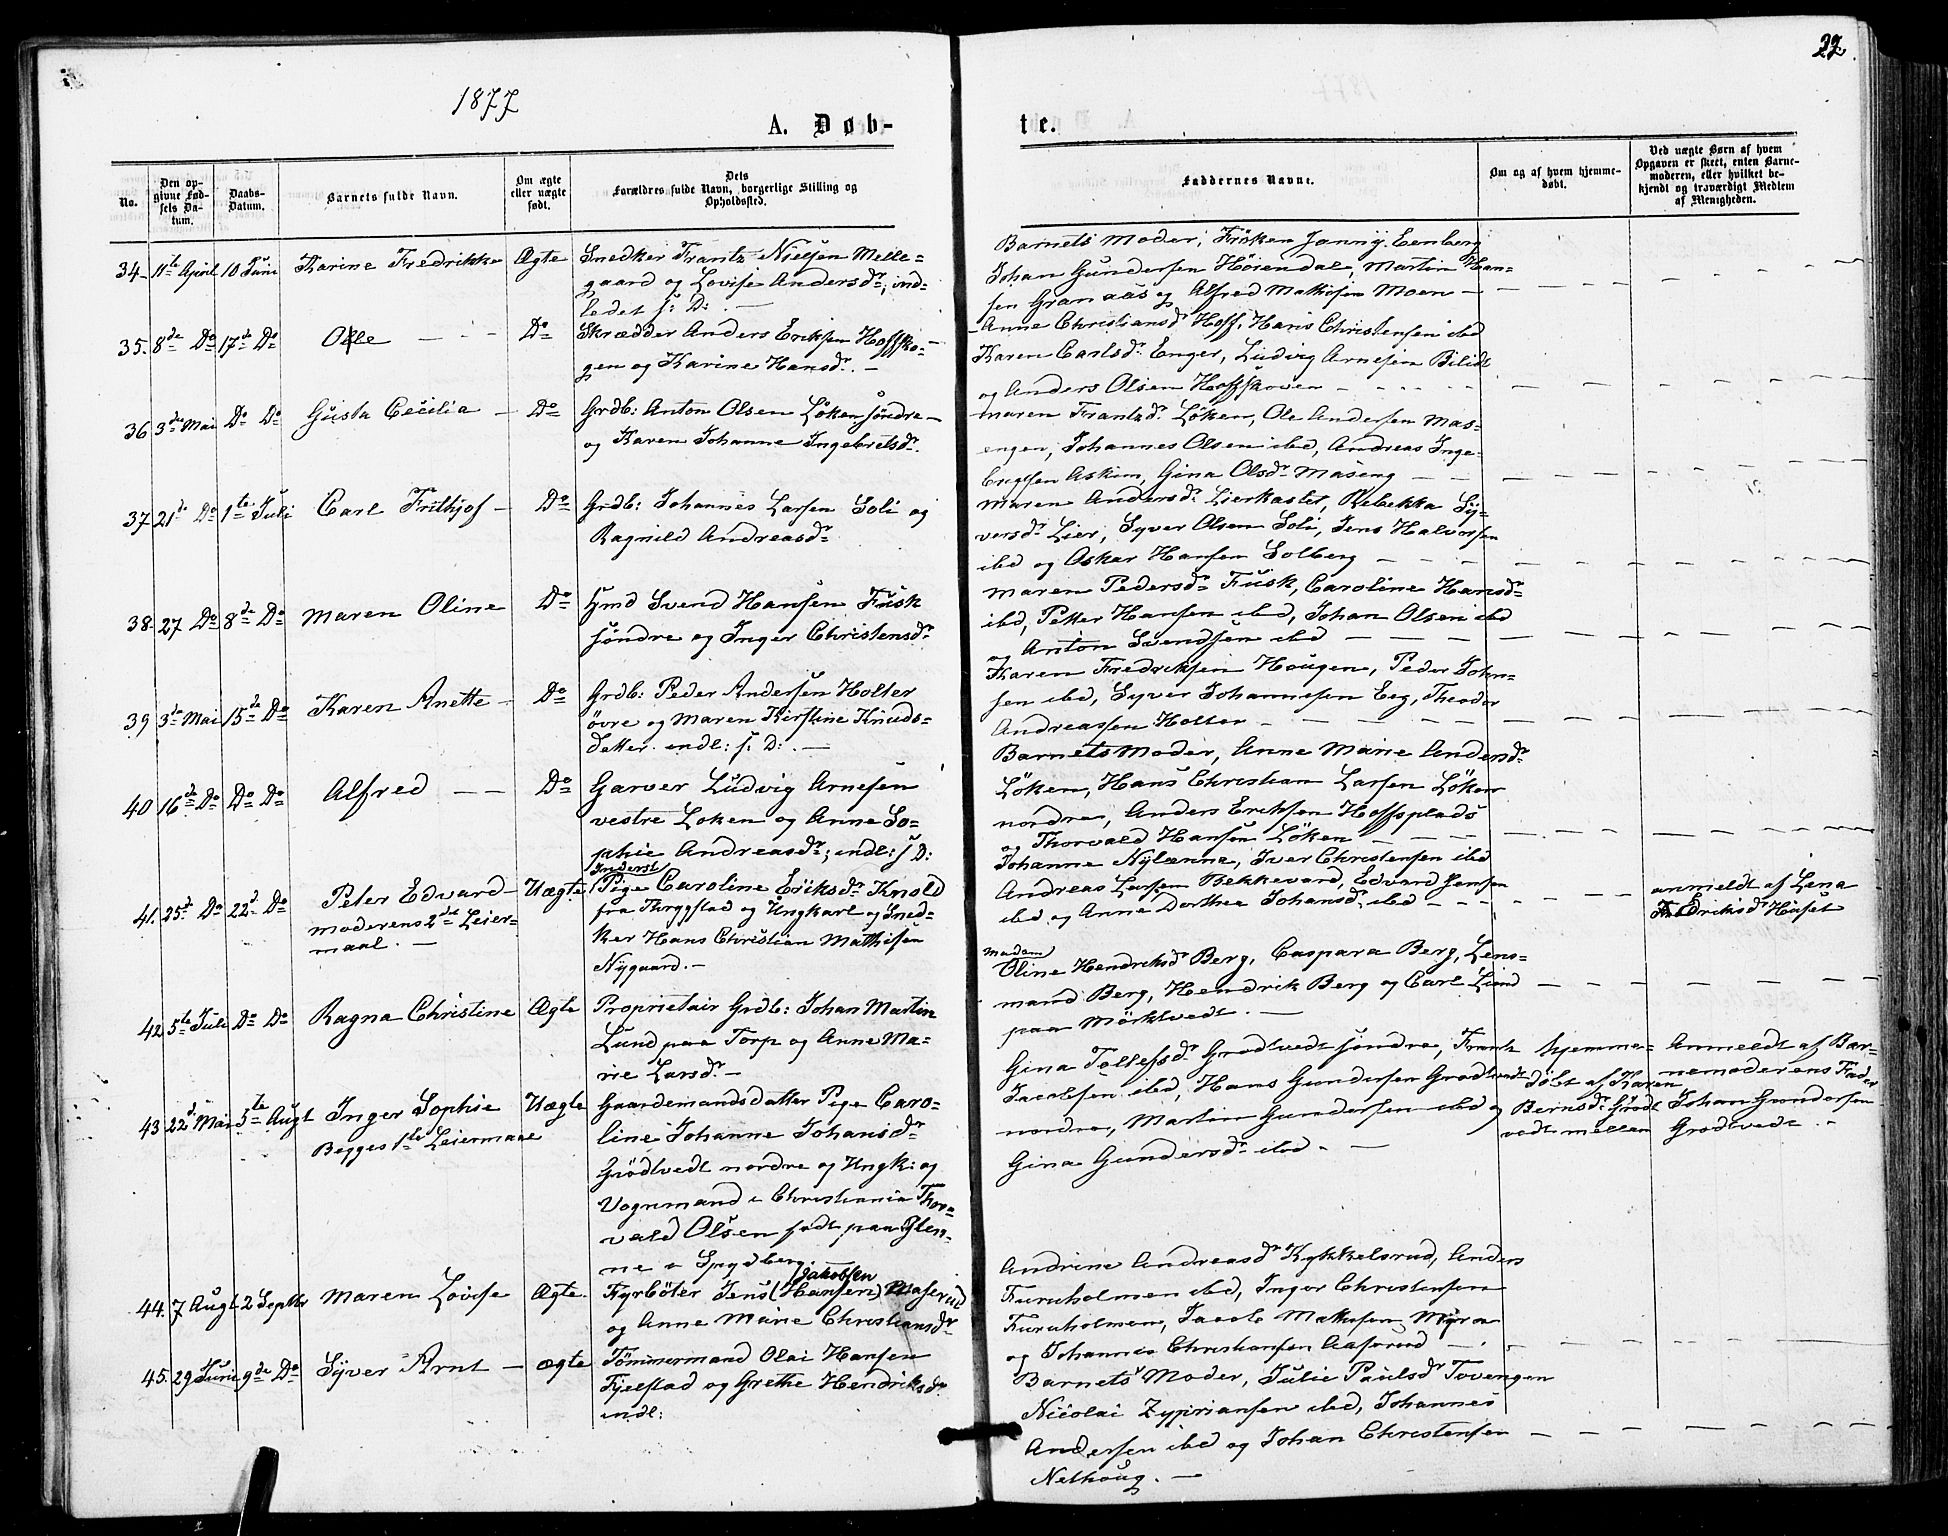 22.
1877
A. Døb-
te.
No.
Den op-
givne Fød-
sels Da-
tum.
Daabs-
Datum.
Barnets fulde Navn.
Om ægte
eller uægte
født.
Dets
Forældres fulde Navn, borgerlige Stilling og
Opholdssted.
Faddernes Navne.
Om og af hvem hjemme-
døbt.
Ved uægte Børn af hvem
Opgaven er skeet, enten Barne-
moderen, eller hvilket be-
kjendt og troværdigt Medlem
af Menigheden.
34 11te April 10 Juni Karine Fredrikke Ægte Snedker Frantz Nielsen Melle-
gaard og Lovise Andersdr, ind-
ledet s: D:
Barnets Moder, Frøken Janny Eenberg
Johan Gundersen Høiendal, Martin Han-
sen Granaas og Alfred Mathisen Moen
35. 8de Do 17de Do Ole Do Skrædder Anders Eriksen Hoffsko-
gen og Karine Hansdr.
Anne Christiansdr Hoff, Hans Christensen ibd
Karen Carlsdr Enger, Ludvig Arnesen Bilidt
og Anders Olsen Hoffskoven
36 3die Mai Do Do Gusta Cecilia Do Grdb: Anton Olsen Løken søndre
og Karen Johanne Ingebretsdr.
Maren Frantsdr Løken, Ole Andersen Mas-
engen, Johannes Olsen ibd, Andreas Inge-
brigtsen Askim, Gina Olsdr Maseng
37 21de Do 1te Juli Carl Frithjof Do Grdb: Johannes Larsen Soli og
Ragnild Andreasdr
Maren Andersdr Lierkastet, Rebekka Sy-
versdr Lier, Syver Olsen Soli, Jens Halvorsen
ibd og Oskar Hansen Solberg
38. 27 Do 8de Do Maren Oline Do Hmd Svend Hansen Fusk
søndre og Inger Christensdr
Maren Pedersdr Fusk, Caroline Hansdr
ibd, Petter Hansen ibd, Johan Olsen ibd
og Anton Svendsen ibd
39 3die Mai 15de Do Karen Anette Do Grdb: Peder Andersen Holter
øvre og Maren Kirstine Knuds-
datter. indl: s: D:
Karen Fredriksen Hougen, Peder John-
sen ibd, Syver Johannesen Eeg, Theodor
Andreassen Holter
40 16de Do Do Do Alfred Do Garver Ludvig Arnesen
vestre Løken og Anne So-
phie Andreasdr; indl: s D:
Barnets Moder, Anne Marie Andersdr
Løken, Hans Christian Larsen Løken
nordre, Anders Eriksen Hoffsplads
og Thorvald Hansen Løken
41. 25de Do 22de Do Peter Edvard Uægte
moderens 2det Leier-
maal.
Inderst
Pige Caroline Eriksdr Knold
fra Thryggstad og Ungkarl og Sned-
ker Hans Christian Mathisen
Nygaard.
Johanne Nylænna, Iver Christensen ibd
Andreas Larsen Bekkevard, Edvard Jensen
ibd og Anne Dorthea Johansdr ibd
anmeldt af Lena
Fredriksdr Huset
42 5te Juli Do Do Ragna Christine Ægte Proprietair Grdb: Johan Martin
Lund paa Torp og Anne Ma-
rie Larsdr
Madam
Oline Hendriksdr Berg, Caspara Berg, Lens-
mand Berg, Hendrik Berg og Carl Lund
paa Mørktvedt.
43 22de Mai 5te Augt Inger Sophie Uægte
Begges 1te Leiermaal
Gaardemandsdatter Pige Caro-
line Johanne Johansdr
Grødtvedt nordre og Ungk: og
Vognmand i Christiania Thor-
vald Olsen født paa Glen-
ne i Spydberg
Gina Tollefsdr Grødtvedt søndre, Frantz
Jacobsen ibd, Hans Gundersen Grødtvedt
nordre, Martin Gundersen ibd og
Gina Gundersdr ibd.
hjemme-
døbt af Karen
Berntsdr Grødt
vedt mellem
Anmeldt af Bar-
nemoderens Fader
Johan Gundersen
Grødtvedt.
44. 7 Augt 2 Septbr Maren Lovise Ægte Fyrbøter Jens (Hansen) Jakobsen Maserud
og Anne Marie Christiansdr
Andrine Andreasdr Kykkelsrud, Anders
Furuholmen ibd, Inger Christensen
Furuholmen, Jacob Mathisen Myra
og Johannes Christiansen Aaserud
45. 29 Juni 9de Do Syver Arnt ægte Tømmermand Olai Hansen
Fjelstad og Grethe Hendriksdr
indl:
Barnets Moder, Julie Paulsdr Tovengen
Nicolai Zypriansen ibd, Johannes
Andersen ibd og Johan Christensen
Nethoug.